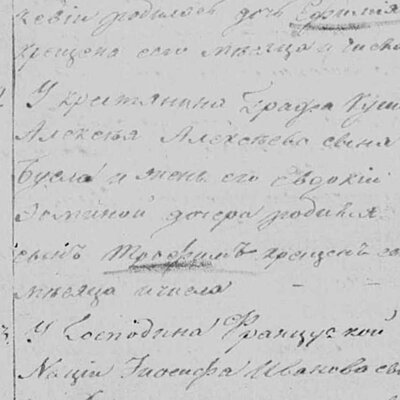 кевіи родилась дочь Ефимія
крещена сего мѣсяца и числа
У крестьянина Графа Куш
Алексѣя Алексѣева сына
Бусла и жены его Евдокіи
дочера родился
сынъ Трофимъ крещенъ
мѣсяца и числа
3 У Господина Француской
Націи Іосифа Иванова